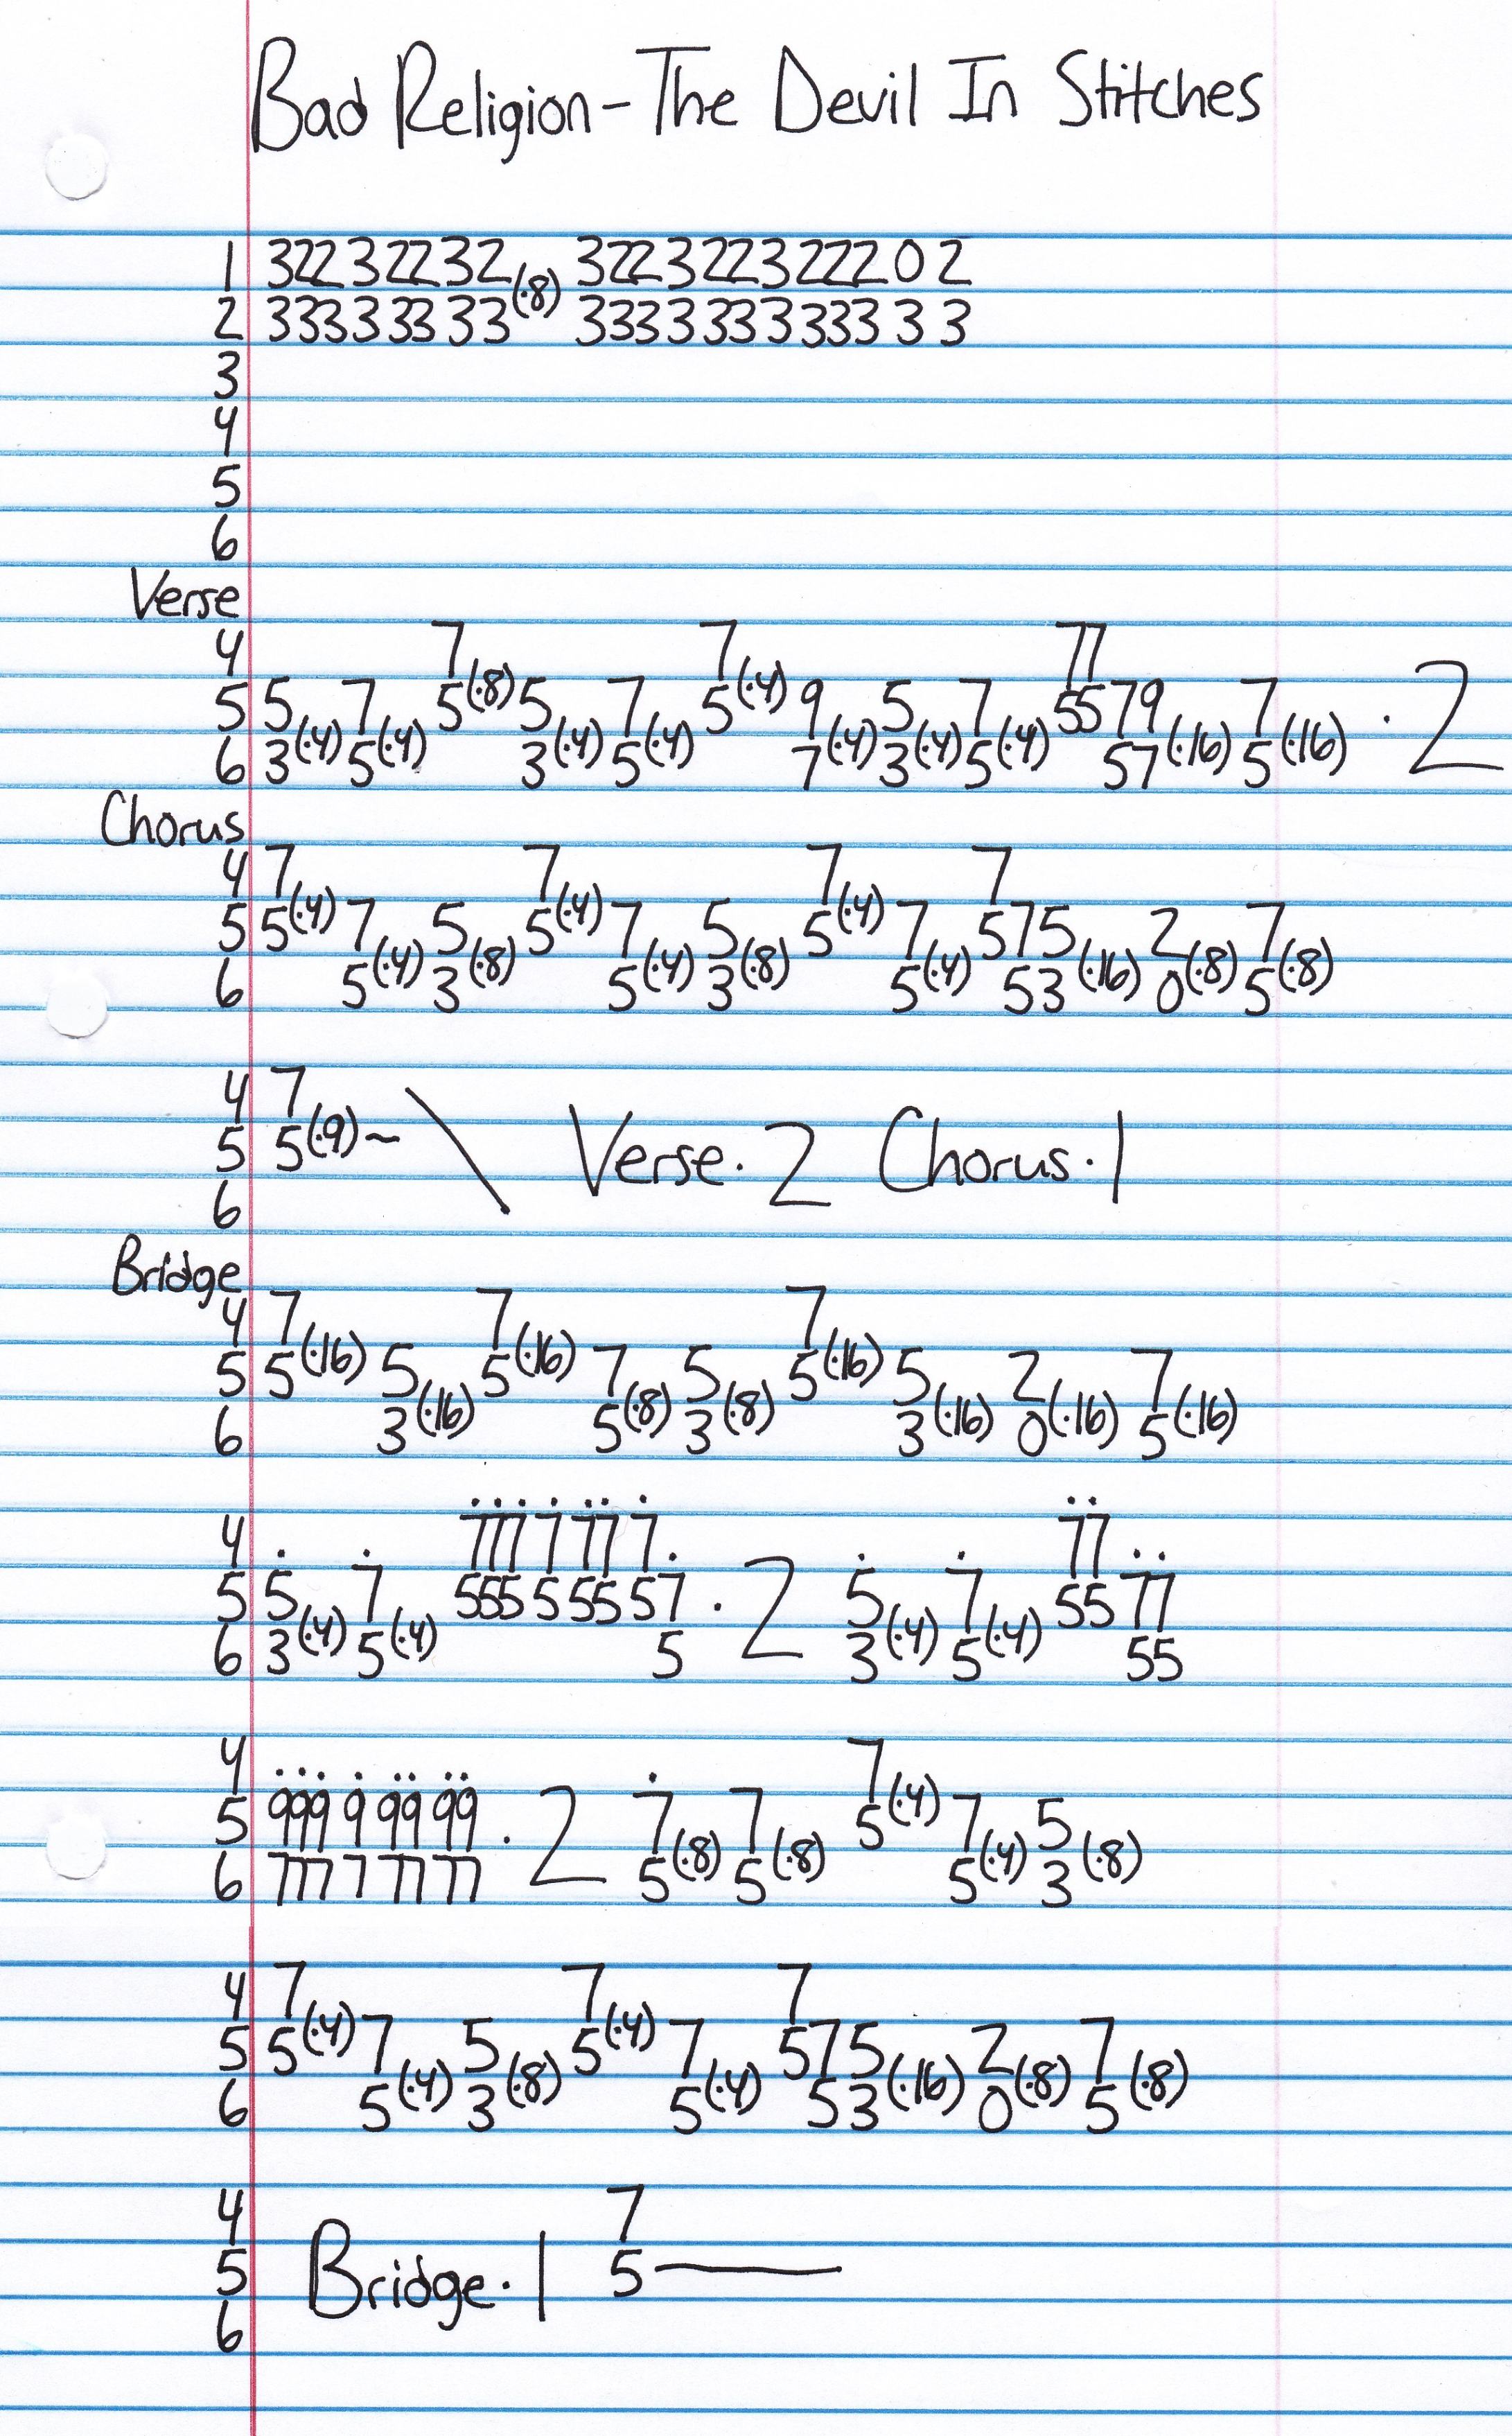 Bad Religion - The Devil In Stitches
1 322 3 22 32 (·8) 322 3 22 3 222 0 2
2 333 3 33 33 333 3 33 3 333 3 3
3
4
5
6
Verse
4 7 7 77
5 5 7 5(·8) 5 7 5(·4) 9 5 7 5579 7 · 2
6 3(·4) 5(·4) 3(·4) 5(·4) 7(·4) 3(·4) 5(·4) 57(·16) 5(·16)
Chorus
4 7 7 7 7
5 5(·4) 7 5 5(·4) 7 5 5(·4) 7 575 2 7
6 5(·4) 3(·8) 5(·4) 3(·8) 5(·4) 53(·16) 0(·8) 5(·8)
4 7
5 5(·9)~ \ Verse·2 Chorus·1
6
Bridge
4 7 7 7
5 5(·16) 5 5(·16) 7 5 5(·16) 5 2 7
6 3(·16) 5(·8) 3(·8) 3(·16) 0(·16) 5(·16)
4 777 7 77 7 77
5 5 7 555 5 55 57 · 2 5 7 55 77
6 3(·4) 5(·4) 5 3(·4) 5(·4) 55
4 7
5 999 9 99 99 · 2 7 7 5(·4) 7 5
6 777 7 77 77 5(·8) 5(·8) 5(·4) 3(·8)
4 7 7 7
5 5(·4) 7 5 5(·4) 7 575 2 7
6 5(·4) 3(·8) 5(·4) 53(·16) 0(·8) 5(·8)
4 7
5 Bridge·1 5—
6